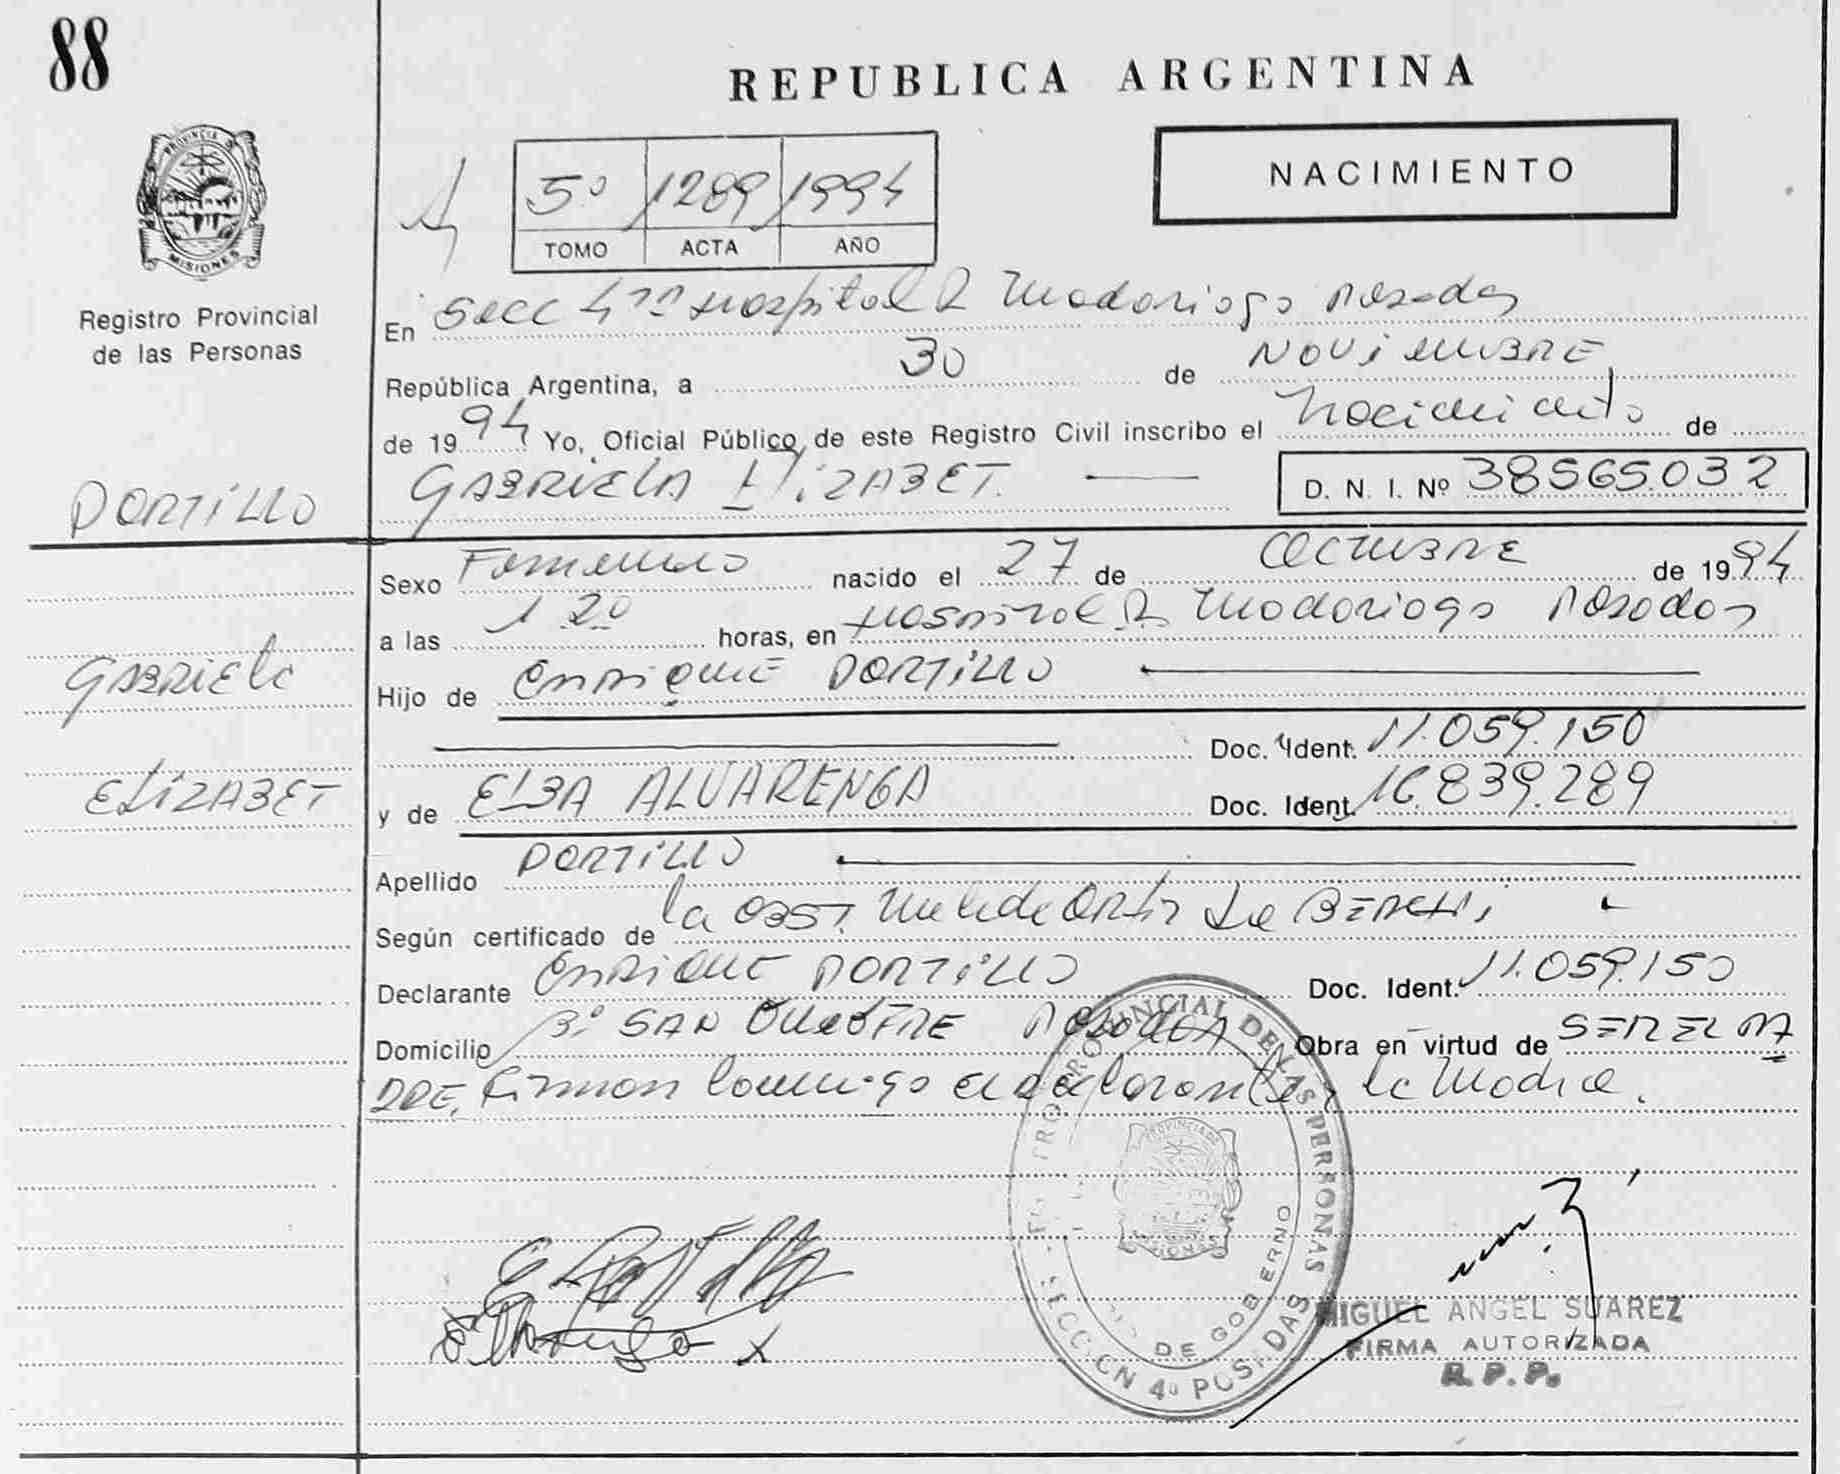 88
REPUBLICA ARGENTINA
PROVINCIA DE
MISIONES
Registro Provincial
de las Personas
5º 1289 1994
TOMO ACTA AÑO
NACIMIENTO
En Secc 4ta Hospital R Madariaga Posadas
República Argentina, a 30 de NOViEMBRE
de 1994 Yo, Oficial Público, de este Registro Civil inscribo el Nacimiento de
PORTiLLO
GABRiELA ELiZABET.
D. N. I. Nº 38565.032
Sexo Femenino nacido el 27 de OCTUBRE de 1994
a las 1 20 horas, en Hospital R Madariaga Posadas
Gabriela
Hijo de ENRiQUE PORTiLLO
Doc. Ident. 11.059.150
ELiZABET
y de ELBA ALVARENGA Doc. Ident. 16.839.289
Apellido PORTiLLO
Según certificado de la OBST. de
Declarante ENRiQUE PORTiLLO Doc. Ident. 11.059.150
Domicilio Bº SAN ONOFRE POSADAS Obra en virtud de SER EL PA
DRE. Firman conmigo el declarante y la Madre.
PROVINCIAL DE LAS PERSONAS
SECCION 4º POSADAS
DE GOBIERNO
E Portillo
E Alvarenga x
MIGUEL ANGEL SUAREZ
FIRMA AUTORIZADA
R. P. P.